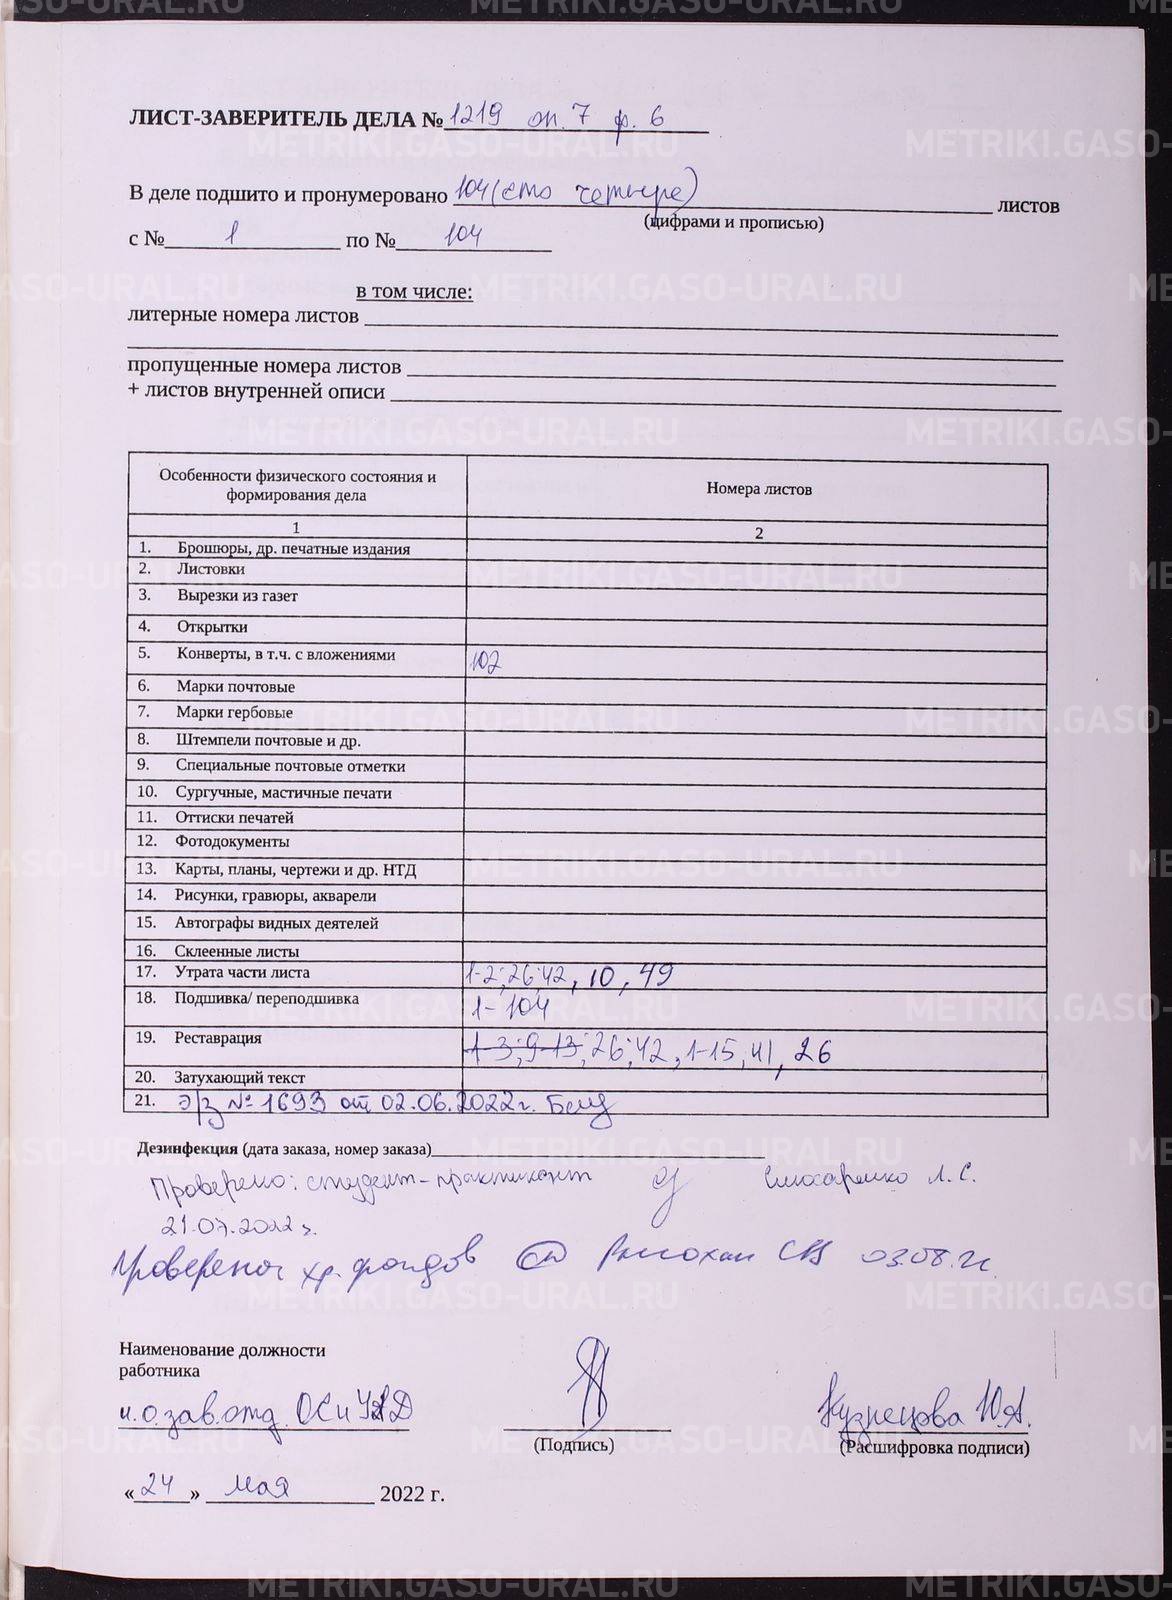 ЛИСТ-ЗАВЕРИТЕЛЬ ДЕЛА № 1219 оп. 7 ф. 6
В деле подшито и пронумеровано 104 (сто четыре) листов
(цифрами и прописью)
с № 1 по № 104
в том числе:
литерные номера листов
пропущенные номера листов
+ листов внутренней описи
Особенности физического состояния и формирования дела Номера листов
1 2
1. Брошюры, др. печатные издания
2. Листовки
3. Вырезки из газет
4. Открытки
5. Конверты, в т.ч. с вложениями 102
6. Марки почтовые
7. Марки гербовые
8. Штемпели почтовые и др.
9. Специальные почтовые отметки
10. Сургучные, мастичные печати
11. Оттиски печатей
12. Фотодокументы
13. Карты, планы, чертежи и др. НТД
14. Рисунки, гравюры, акварели
15. Автографы видных деятелей
16. Склеенные листы
17. Утрата части листа 1-2;26;42, 10, 49
18. Подшивка/ переподшивка 1-104
19. Реставрация 1-3;9-13;26;42, 1-15, 41, 26
20. Затухающий текст
21. Э/з № 1693 от 02.06.2022 г.
Дезинфекция (дата заказа, номер заказа)
Проверено: студент-практикант Л. С.
21.07.2022 г.
Проверено хр. фондов 03.08.22
Наименование должности
работника
и.о. зав. отд. ОСиУАД
Кузнецова Ю.А.
(Подпись) (Расшифровка подписи)
«24» мая 2022 г.
METRIKI.GASO-URAL.RU